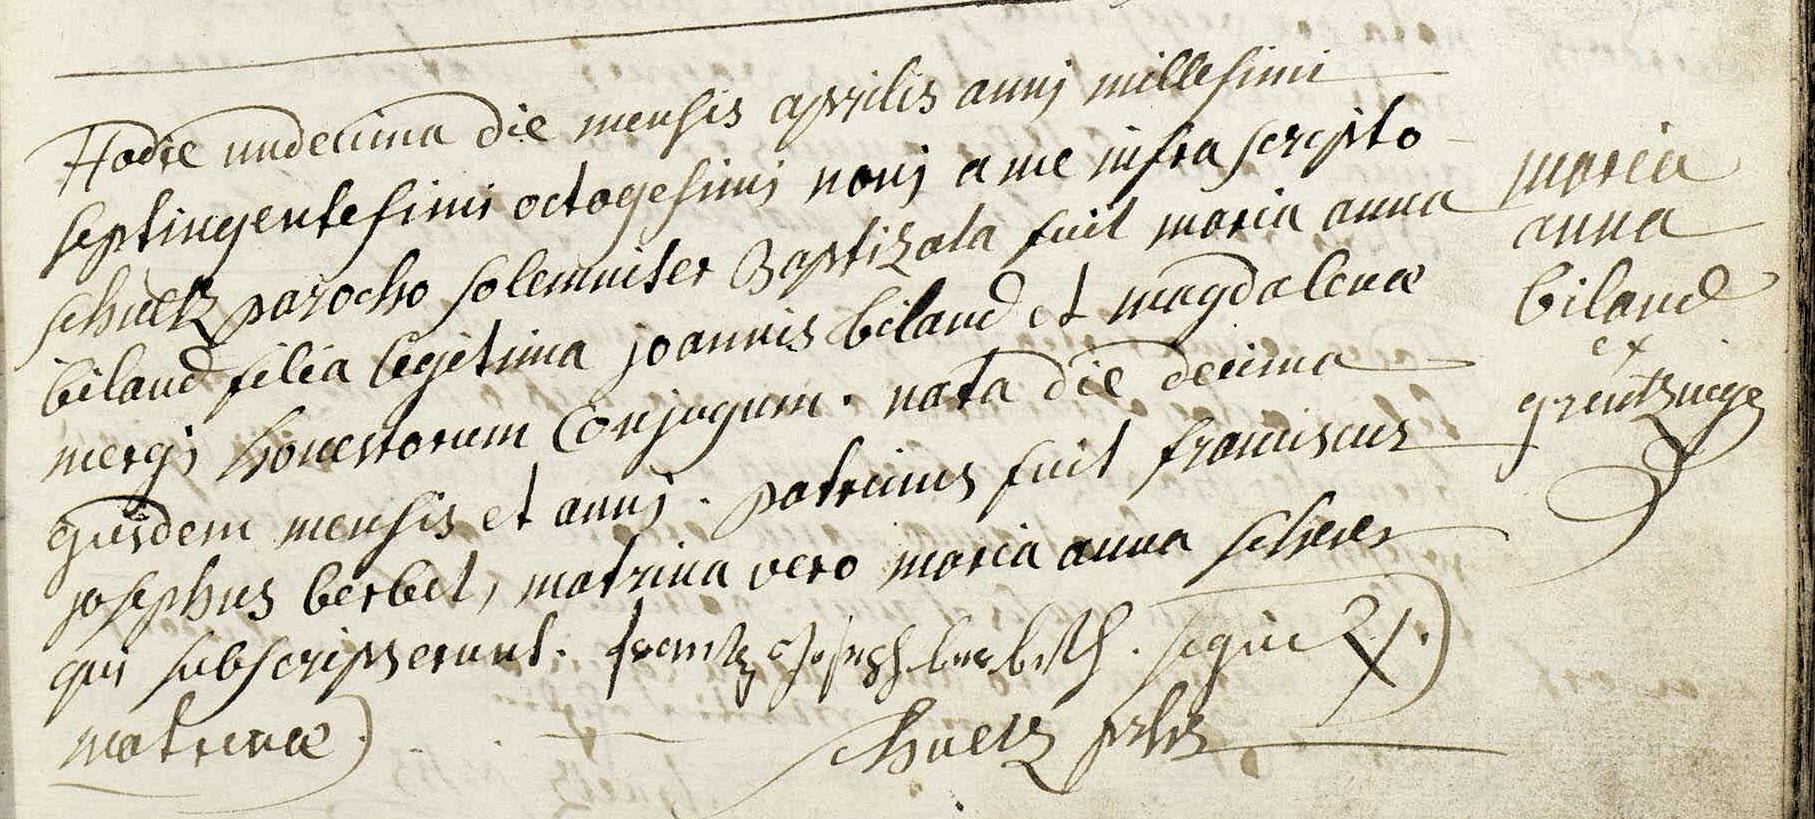 Hodie undecima die mensis aprilis annj millesimi
septingentesimi octogesimj nonj a me infra scripto
schuelz parocho solemniter Baptizata fuit maria anna
biland filia legitima joannis biland et magdalenæ
mergj honestorum Conjugum. nata die decima
ejusdem mensis et annj. patrinus fuit franciscus
josephus berbet, matrina vero maria anna scherer
qui subscripserunt. frantz Joseph berbeth. signu X.
matrinæ
schuelz
maria
anna
biland
ex
grentzinge